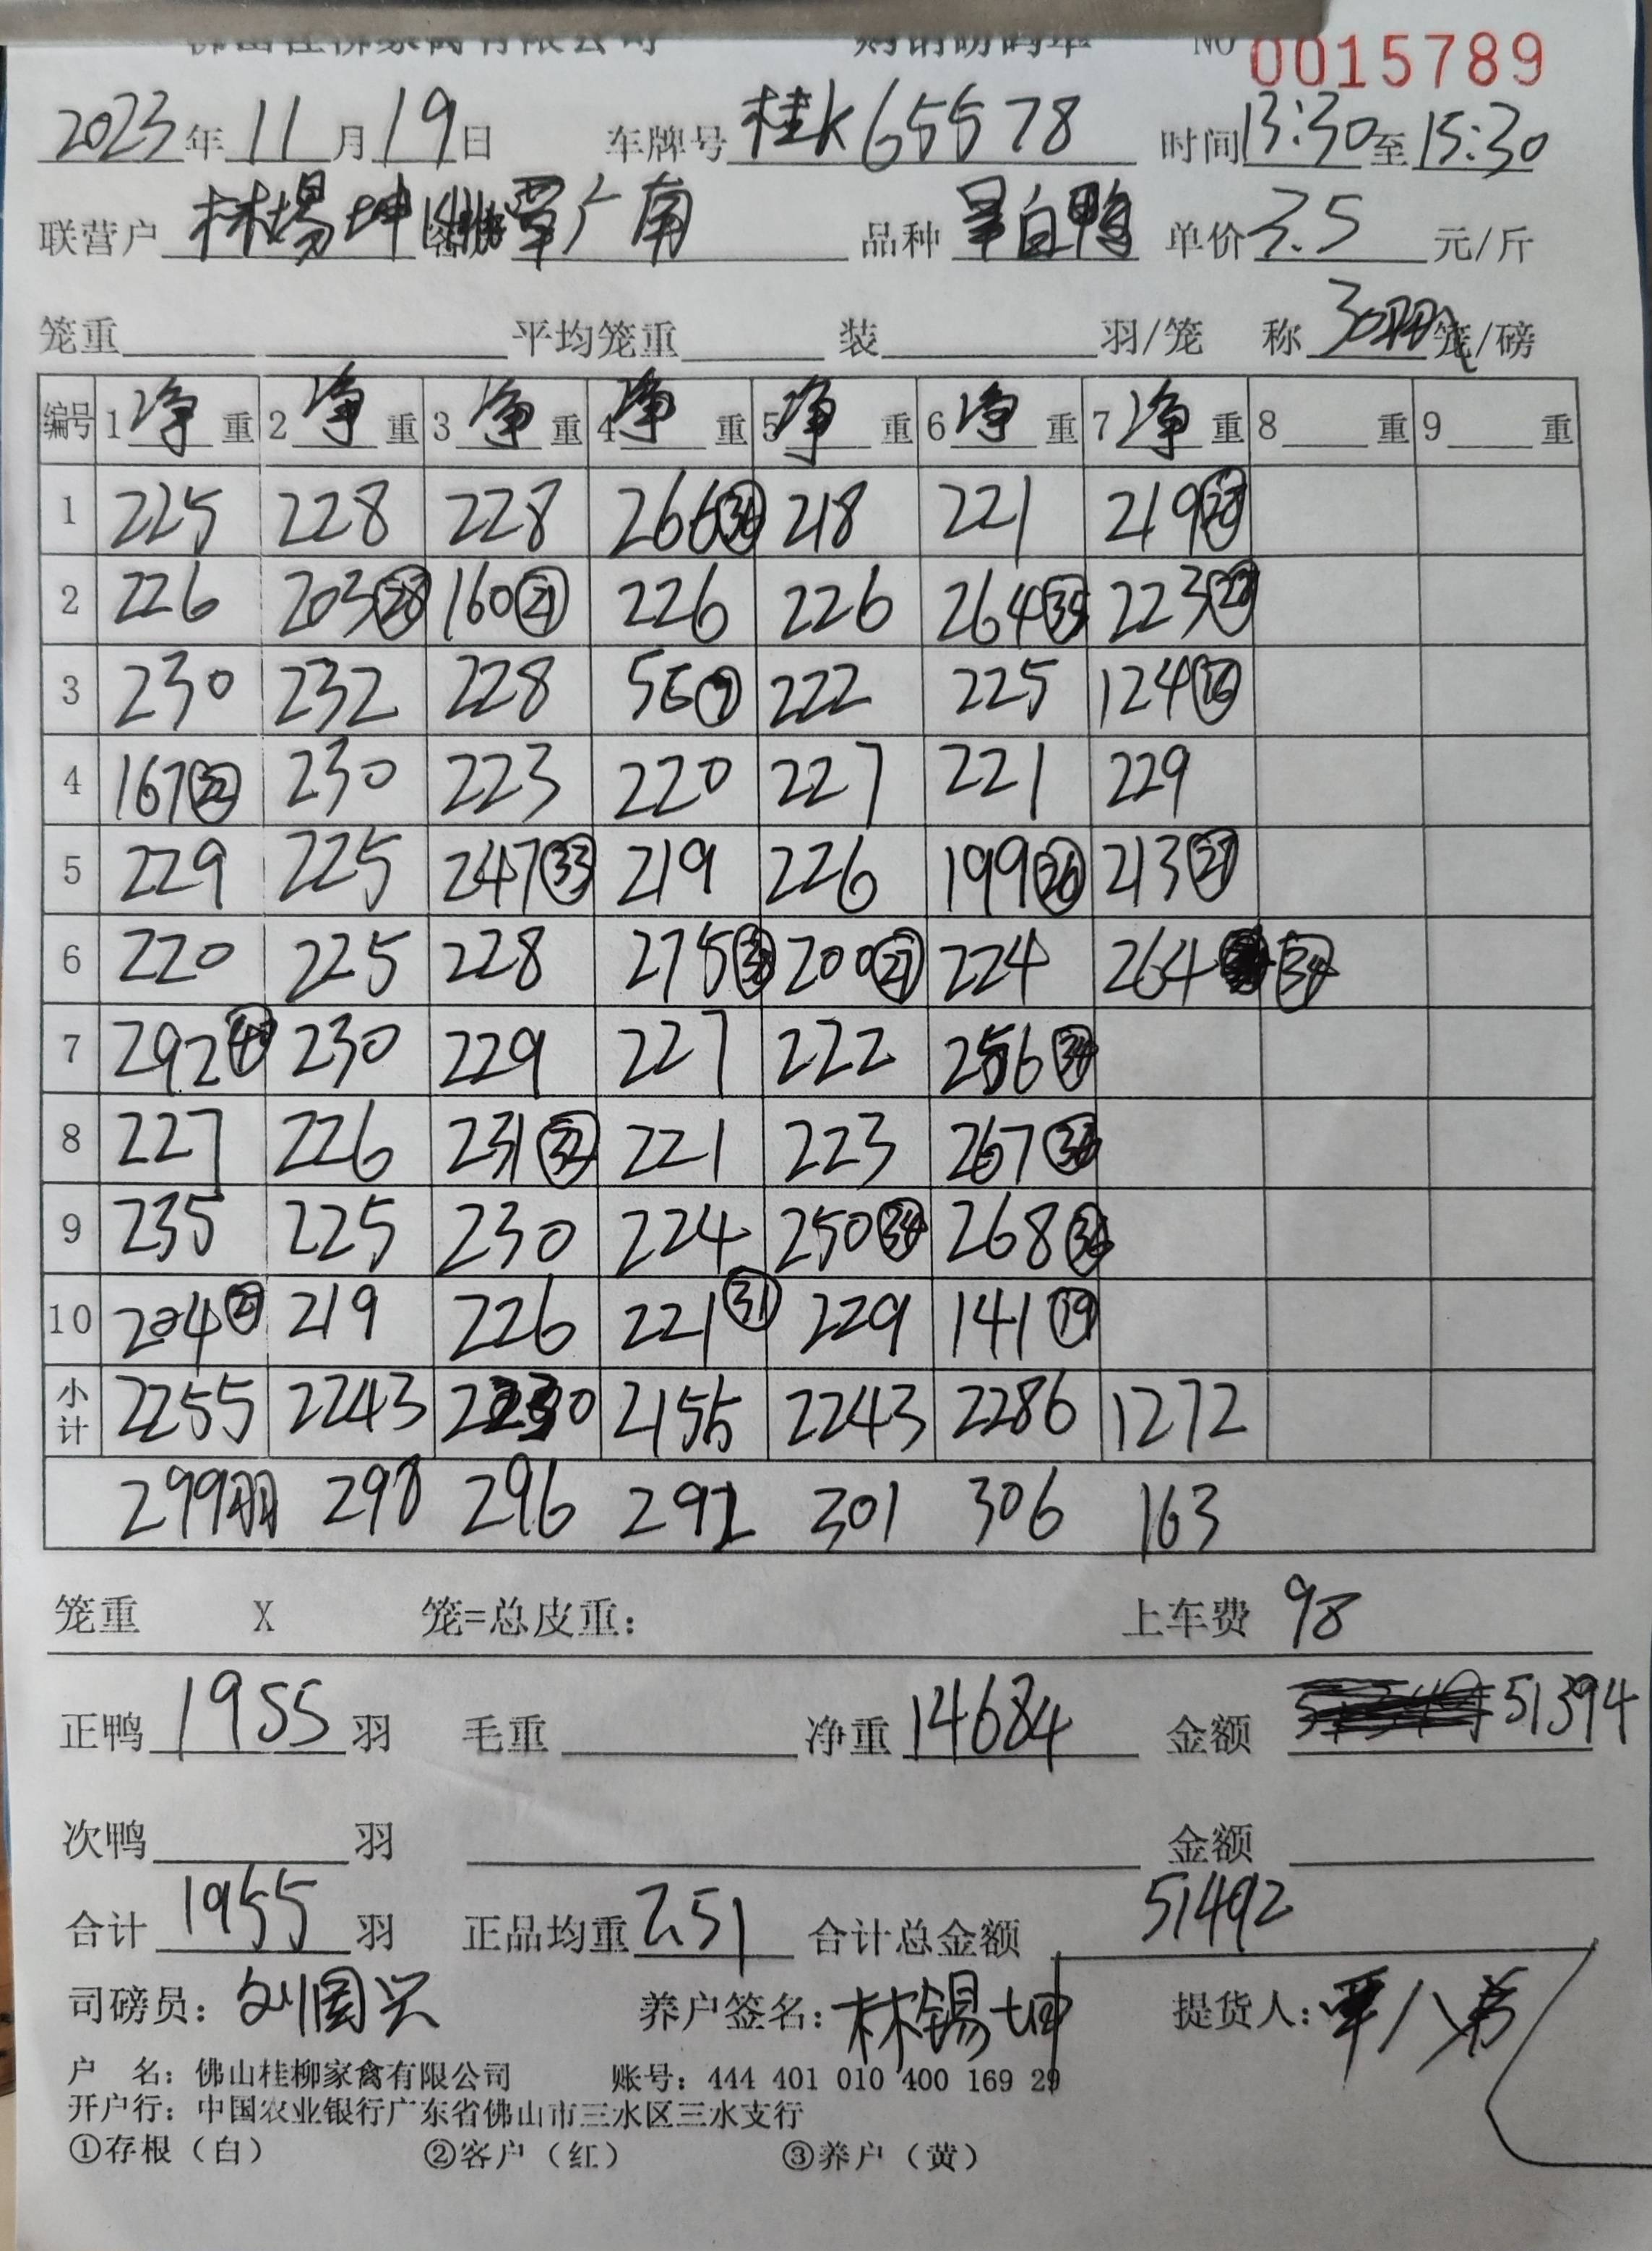 佛山桂柳家禽有限公司 购销磅码单 NO 0015789
2023年11月19日 车牌号 桂K65578 时间13:30至15:30
联营户 林锡坤 客户 覃广南 品种 白鸭 单价 3.5 元/斤
笼重 平均笼重 装 羽/笼 称 30羽 笼/磅
编号 1净重 2净重 3净重 4净重 5净重 6净重 7净重 8重 9重
1 225 228 228 266(36) 218 221 219(28)
2 226 203(28) 160(21) 226 226 264(35) 223(28)
3 230 232 228 56(7) 222 225 124(16)
4 167(22) 230 223 220 227 221 229
5 229 225 247(33) 219 226 199(26) 213(27)
6 220 225 228 275 200(27) 224 264 (34)
7 292(40) 230 229 227 222 256(34)
8 227 226 231(32) 221 223 267(36)
9 235 225 230 224 250(34) 268(36)
10 204 219 226 221(31) 229 141(19)
小计 2255 2243 2230 2155 2243 2286 1272
299羽 298 296 292 301 306 163
笼重 X 笼=总皮重: 上车费 98
正鸭 1955 羽 毛重 净重 14684 金额 51394
次鸭 羽 金额
合计 1955 羽 正品均重 7.51 合计总金额 51492
司磅员: 刘国兴 养户签名: 林锡坤 提货人:
户 名: 佛山桂柳家禽有限公司 账号: 444 401 010 400 169 29
开户行: 中国农业银行广东省佛山市三水区三水支行
①存根(白) ②客户(红) ③养户(黄)